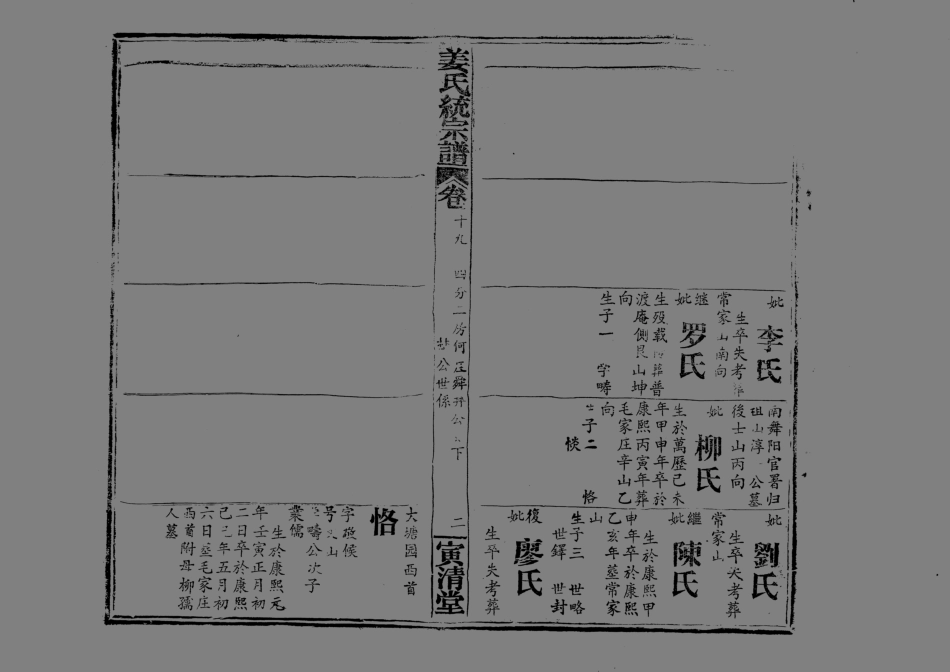 妣
李氏
生卒失考
常家山南向
継
妣
罗氏
生殁載
葬普
渡庵側艮山坤
向
生子一 学疇
南舞阳官署归
祖山淳
公墓
後士山丙向
妣
柳氏
生於萬歷己未
年甲申年卒於
康熙丙寅年葬
毛家庄辛山乙
向
子二
惔
恪
妣
劉氏
生卒失考葬
常家山
繼
妣
陳氏
生於康熙甲
申年卒於康熙
乙亥年塟常家
山
生子三 世略
世鐸 世封
復
妣
廖氏
生卒失考葬
姜氏統宗譜
卷
十九
四分二房何庄舜
公
下
公世係
二
寅清堂
大塘园西首
恪
字
候
号
山
疇公次子
業儒
生於康熙元
年壬寅正月初
二日卒於康熙
己
年五月初
六日塟毛家庄
西首附母柳孺
人墓